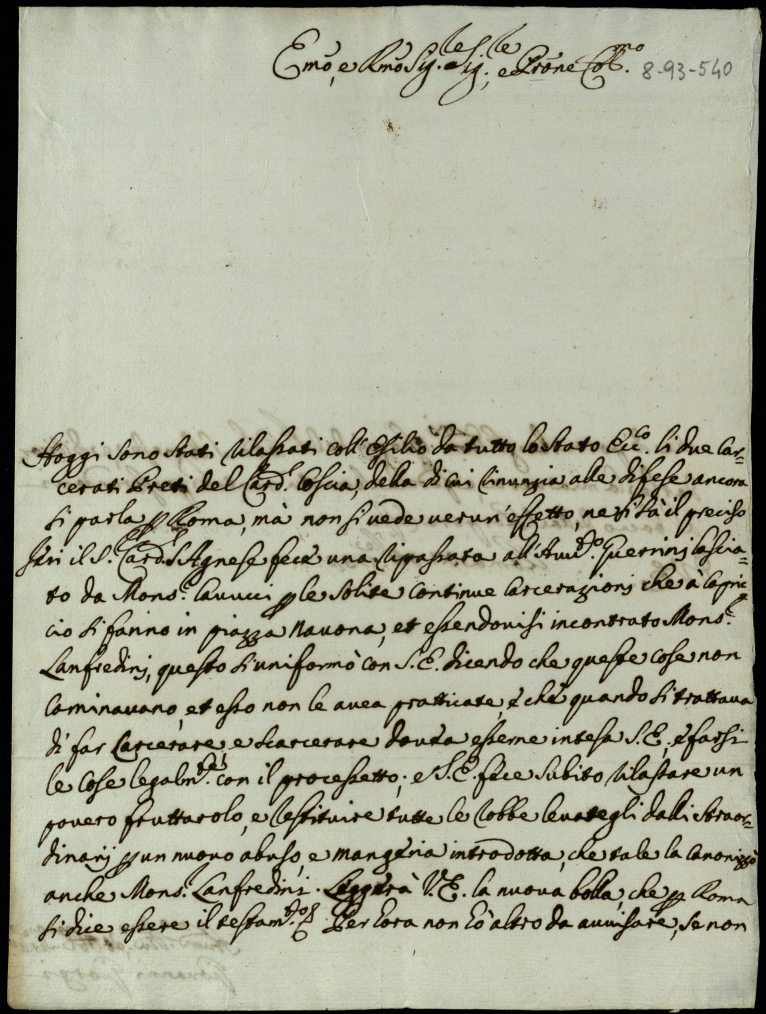 Emo, e Rmo Sig.le Sig.le, e Prone Col.mo 8-93-540
Hoggi sono stati rilassati coll'esilio da tutto lo stato Ecc.co li due Car=
cerati Preti del Card.l Coscia, della di cui rinunzia alle difese ancora
si parla p Roma, mà non si vede verun'effetto, ne si sà il preciso
Jeri il S.r Card.l S. Agnese fece una ripassata all'Aud.re Guerrini lascia=
to da Mons.r Cavucci p le solite continue carcerazioni che à capric=
cio si fanno in piazza Navona, et essendovisi incontrato Mons.r
Lanfredini, questo si uniformò con S. E. dicendo che queste cose non
caminavano, et esso non le avea pratticate, e che quando si trattava
di far carcerare, e scarcerare dovea esserne intesa S. E., e farsi
le cose legalm.te con il processetto; e S. E. fece subito rilassare un
povero fruttarolo, e restituire tutte le robbe levategli dalli straor=
dinarij p un nuovo abuso, e mangeria introdotta, che tale la canonizzò
anche Mons.r Lanfredini. Leggerà V. E. la nuova bolla, che p Roma
si dice essere il testam.to Per hora non hò altro da avvisare, se non